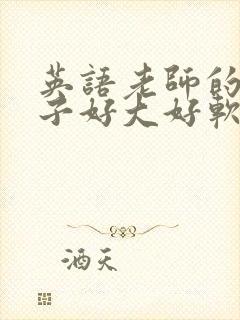 英語老師的
子好大好軟
酒天